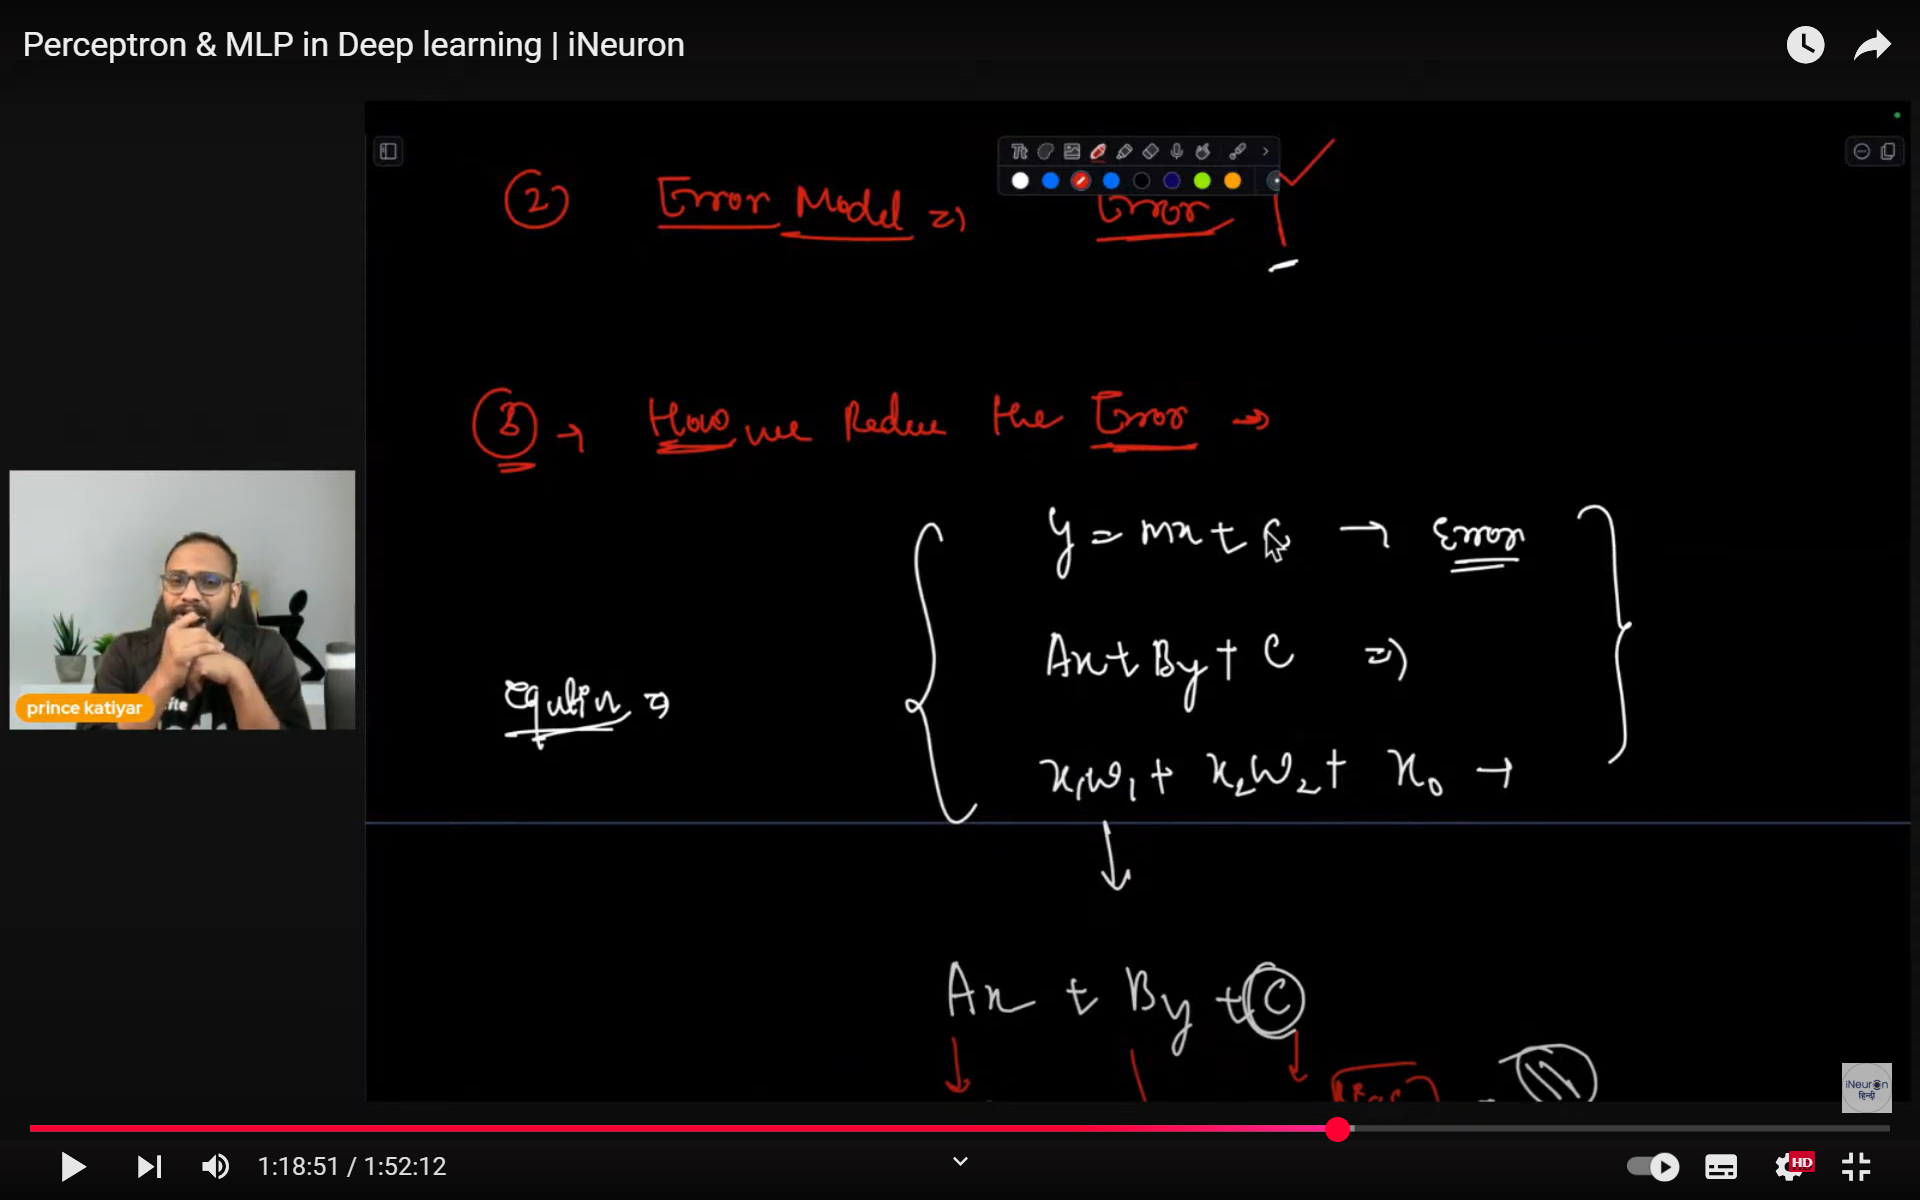 Perceptron & MLP in Deep learning | iNeuron
② Error Model => Error
③ → How we Reduce the Error →
y = mx + c → Error
Ax + By + C =>
x₁w₁ + x₂w₂ + x₀ →
Ax + By + C
prince katiyar
iNeuron
हिन्दी
1:18:51 / 1:52:12
HD